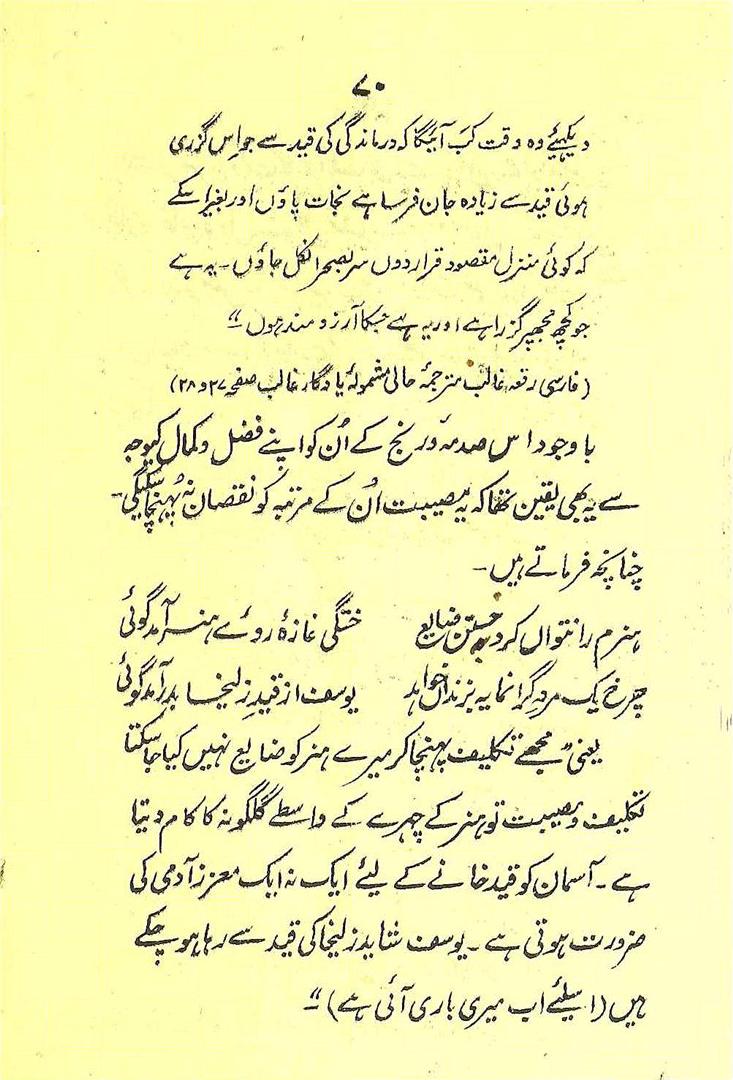 ۷۰
دیکہئیے وہ وقت کب آئیگا کہ درماندگی کی قید سے جو اس گزری
ہوئی قید سے زیادہ جان فرسا ہے نجات پاؤں اور بغیر اسکے
کہ کوئی منزل مقصود قرار دوں سر بصحرا نکل جاؤں۔ یہ ہے
جو کچھ مجھپر گزرا ہے اور یہ ہے جسکا آرزو مند ہوں"
(فارسی رقعہ غالب مترجمۂ حالی مشمولۂ یادگار غالب صفحہ ۲۷ و ۲۸)
باوجود اس صدمہ و رنج کے اُن کو اپنے فضل و کمال کیوجہ
سے یہ بھی یقین تھا کہ یہ مصیبت اُن کے مرتبہ کو نقصان نہ پُہنچا سکیگی۔
چنانچہ فرماتے ہیں۔
ہنرم را نتواں کرد بہ خستن ضایع خستگی غازۂ روئے ہنر آمد گوئی
چرخ یک مرد گرانمایہ بزنداں خواہد یوسف از قیدِ زلیخا بدر آمد گوئی
یعنی "مجھے تکلیف پہنچا کر میرے ہنر کو ضایع نہیں کیا جا سکتا
تکلیف و مصیبت تو ہنر کے چہرے کے واسطے گلگونہ کا کام دیتا
ہے۔ آسمان کو قید خانے کے لیئے ایک نہ ایک معزز آدمی کی
ضرورت ہوتی ہے۔ یوسف شاید زلیخا کی قید سے رہا ہو چکے
ہیں (اسلیئے اب میری باری آئی ہے)"